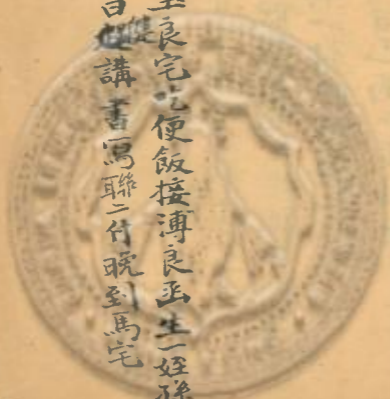 良宅吃便飯接溥良函生一姪孫
講書寫聯二付晚到馬宅